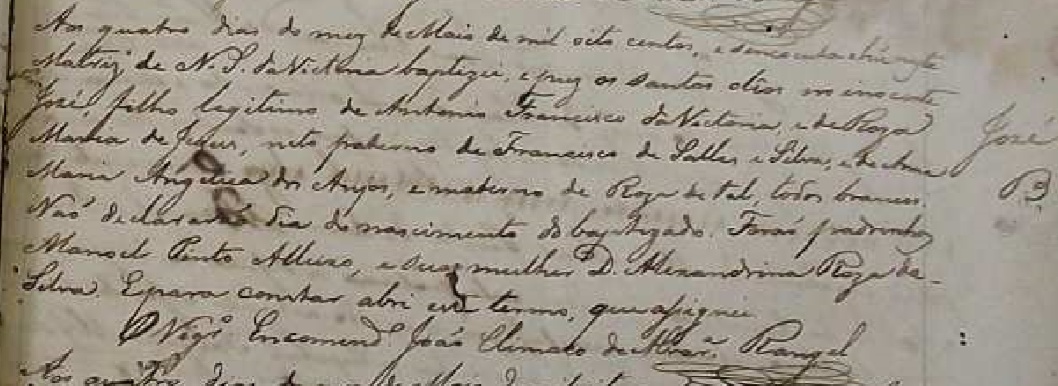 Aos quatro dias do mez de Maio de mil oito centos, e sincoenta e hú nesta
Matriz de N. S. da Victoria baptizei, e puz os santos oleos no inocente
José, filho legitimo de Antonio Francisco da Victoria, e de Roza
José
Maria de Jesus, neto paterno de Francisco de Salles e Silva, e de Anna
Maria Angelica dos Anjos, e materno de Roza de tal, todos brancos.
B.
Naõ declararaõ dia do nascimento do baptizado. Foraõ padrinhos
Manoel Pinto Alleixo, e sua mulher D. Alexandrina Roza da
Silva. E para constar abri este termo, que assignei
O Vigr.º Encomend.º Joaõ Climaco de Alvar.ª Rangel
Aos quatro dias do mez de Maio de mil oito